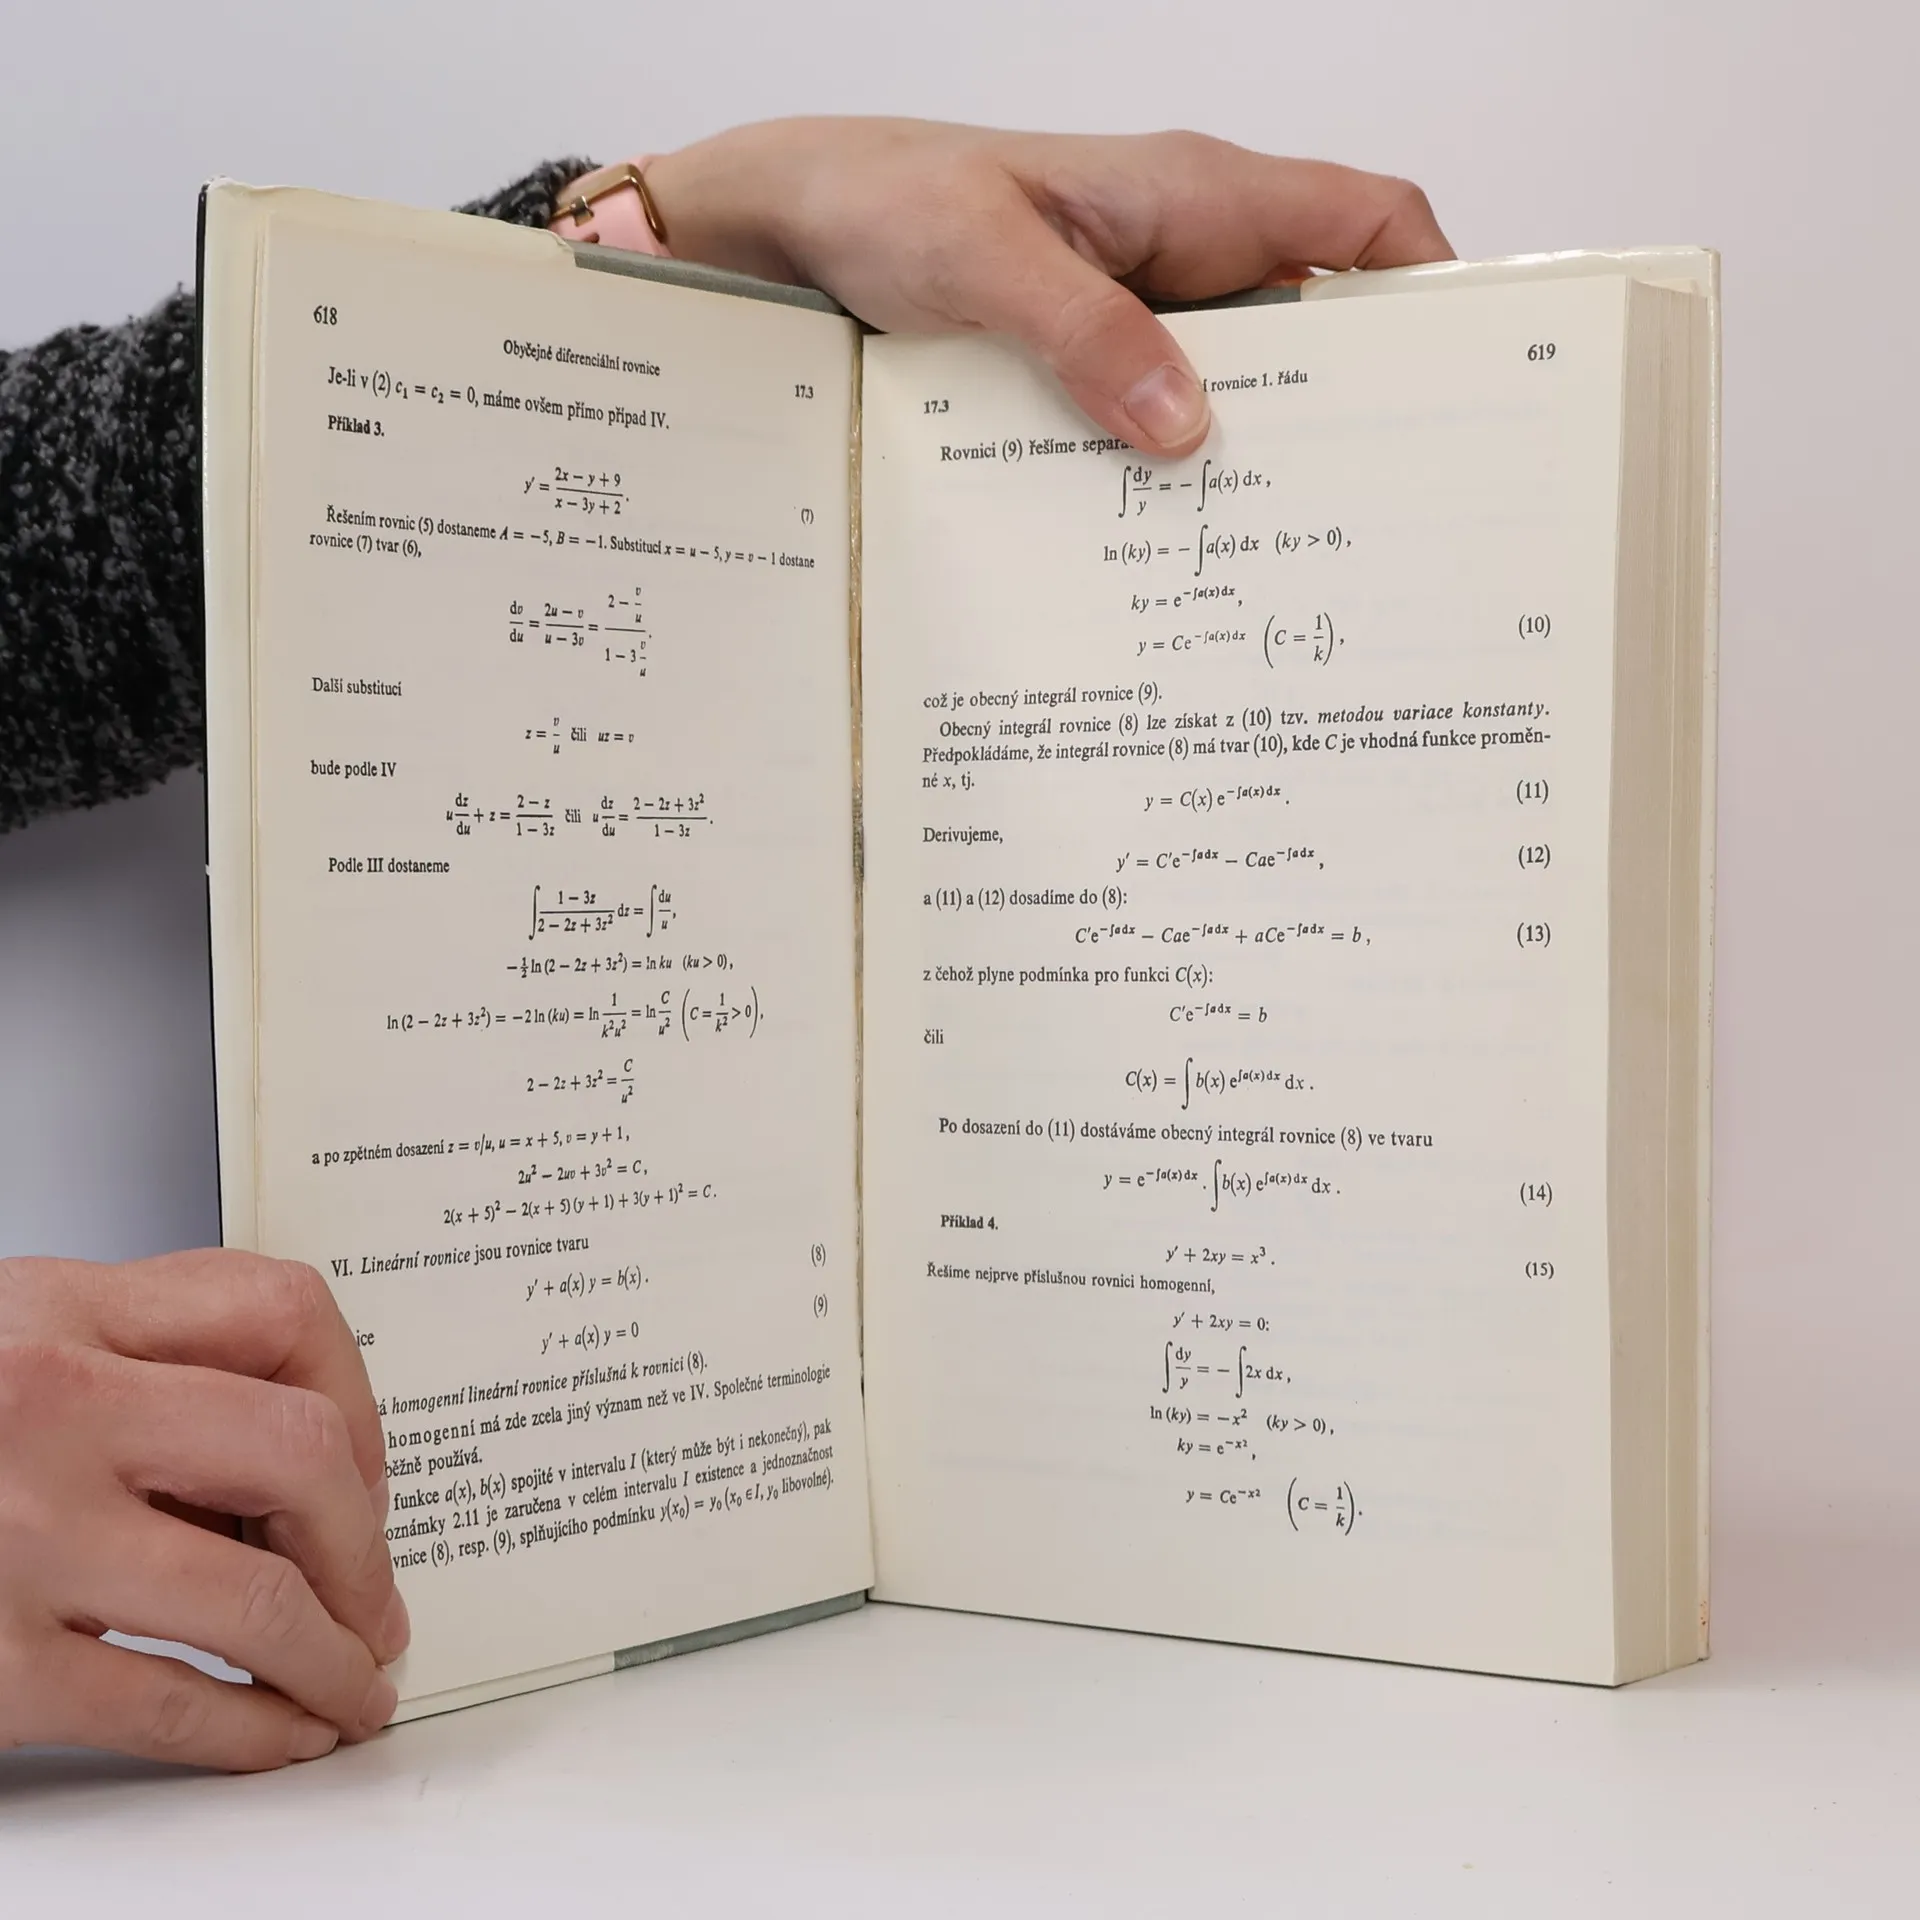 618
Obyčejné diferenciální rovnice
17.3
Je-li v (2) c₁ = c₂ = 0, máme ovšem přímo případ IV.
Příklad 3.
y′ = (2x − y + 9)/(x − 3y + 2). (7)
Řešením rovnic (5) dostaneme A = −5, B = −1. Substitucí x = u − 5, y = v − 1 dostane
rovnice (7) tvar (6),
dv/du = (2u − v)/(u − 3v) = (2 − v/u)/(1 − 3 v/u).
Další substitucí
z = v/u čili uz = v
bude podle IV
u dz/du + z = (2 − z)/(1 − 3z) čili u dz/du = (2 − 2z + 3z²)/(1 − 3z).
Podle III dostaneme
∫ (1 − 3z)/(2 − 2z + 3z²) dz = ∫ du/u,
−½ ln (2 − 2z + 3z²) = ln ku (ku > 0),
ln (2 − 2z + 3z²) = −2 ln (ku) = ln 1/(k²u²) = ln C/u² (C = 1/k² > 0),
2 − 2z + 3z² = C/u²
a po zpětném dosazení z = v/u, u = x + 5, v = y + 1,
2u² − 2uv + 3v² = C,
2(x + 5)² − 2(x + 5)(y + 1) + 3(y + 1)² = C.
VI. Lineární rovnice jsou rovnice tvaru
y′ + a(x) y = b(x). (8)
y′ + a(x) y = 0 (9)
homogenní lineární rovnice příslušná k rovnici (8).
homogenní má zde zcela jiný význam než ve IV. Společné terminologie
běžně používá.
funkce a(x), b(x) spojité v intervalu I (který může být i nekonečný), pak
2.11 je zaručena v celém intervalu I existence a jednoznačnost
(8), resp. (9), splňujícího podmínku y(x₀) = y₀ (x₀ ∈ I, y₀ libovolné).
619
rovnice 1. řádu
17.3
Rovnici (9) řešíme
∫ dy/y = − ∫ a(x) dx,
ln (ky) = − ∫ a(x) dx (ky > 0),
ky = e^(−∫a(x) dx),
y = Ce^(−∫a(x) dx) (C = 1/k), (10)
což je obecný integrál rovnice (9).
Obecný integrál rovnice (8) lze získat z (10) tzv. metodou variace konstanty.
Předpokládáme, že integrál rovnice (8) má tvar (10), kde C je vhodná funkce proměn-
né x, tj.
y = C(x) e^(−∫a(x) dx). (11)
Derivujeme,
y′ = C′e^(−∫a dx) − Cae^(−∫a dx), (12)
a (11) a (12) dosadíme do (8):
C′e^(−∫a dx) − Cae^(−∫a dx) + aCe^(−∫a dx) = b, (13)
z čehož plyne podmínka pro funkci C(x):
C′e^(−∫a dx) = b
čili
C(x) = ∫ b(x) e^(∫a(x) dx) dx.
Po dosazení do (11) dostáváme obecný integrál rovnice (8) ve tvaru
y = e^(−∫a(x) dx) . ∫ b(x) e^(∫a(x) dx) dx. (14)
Příklad 4.
y′ + 2xy = x³. (15)
Řešíme nejprve příslušnou rovnici homogenní,
y′ + 2xy = 0:
∫ dy/y = − ∫ 2x dx,
ln (ky) = −x² (ky > 0),
ky = e^(−x²),
y = Ce^(−x²) (C = 1/k).